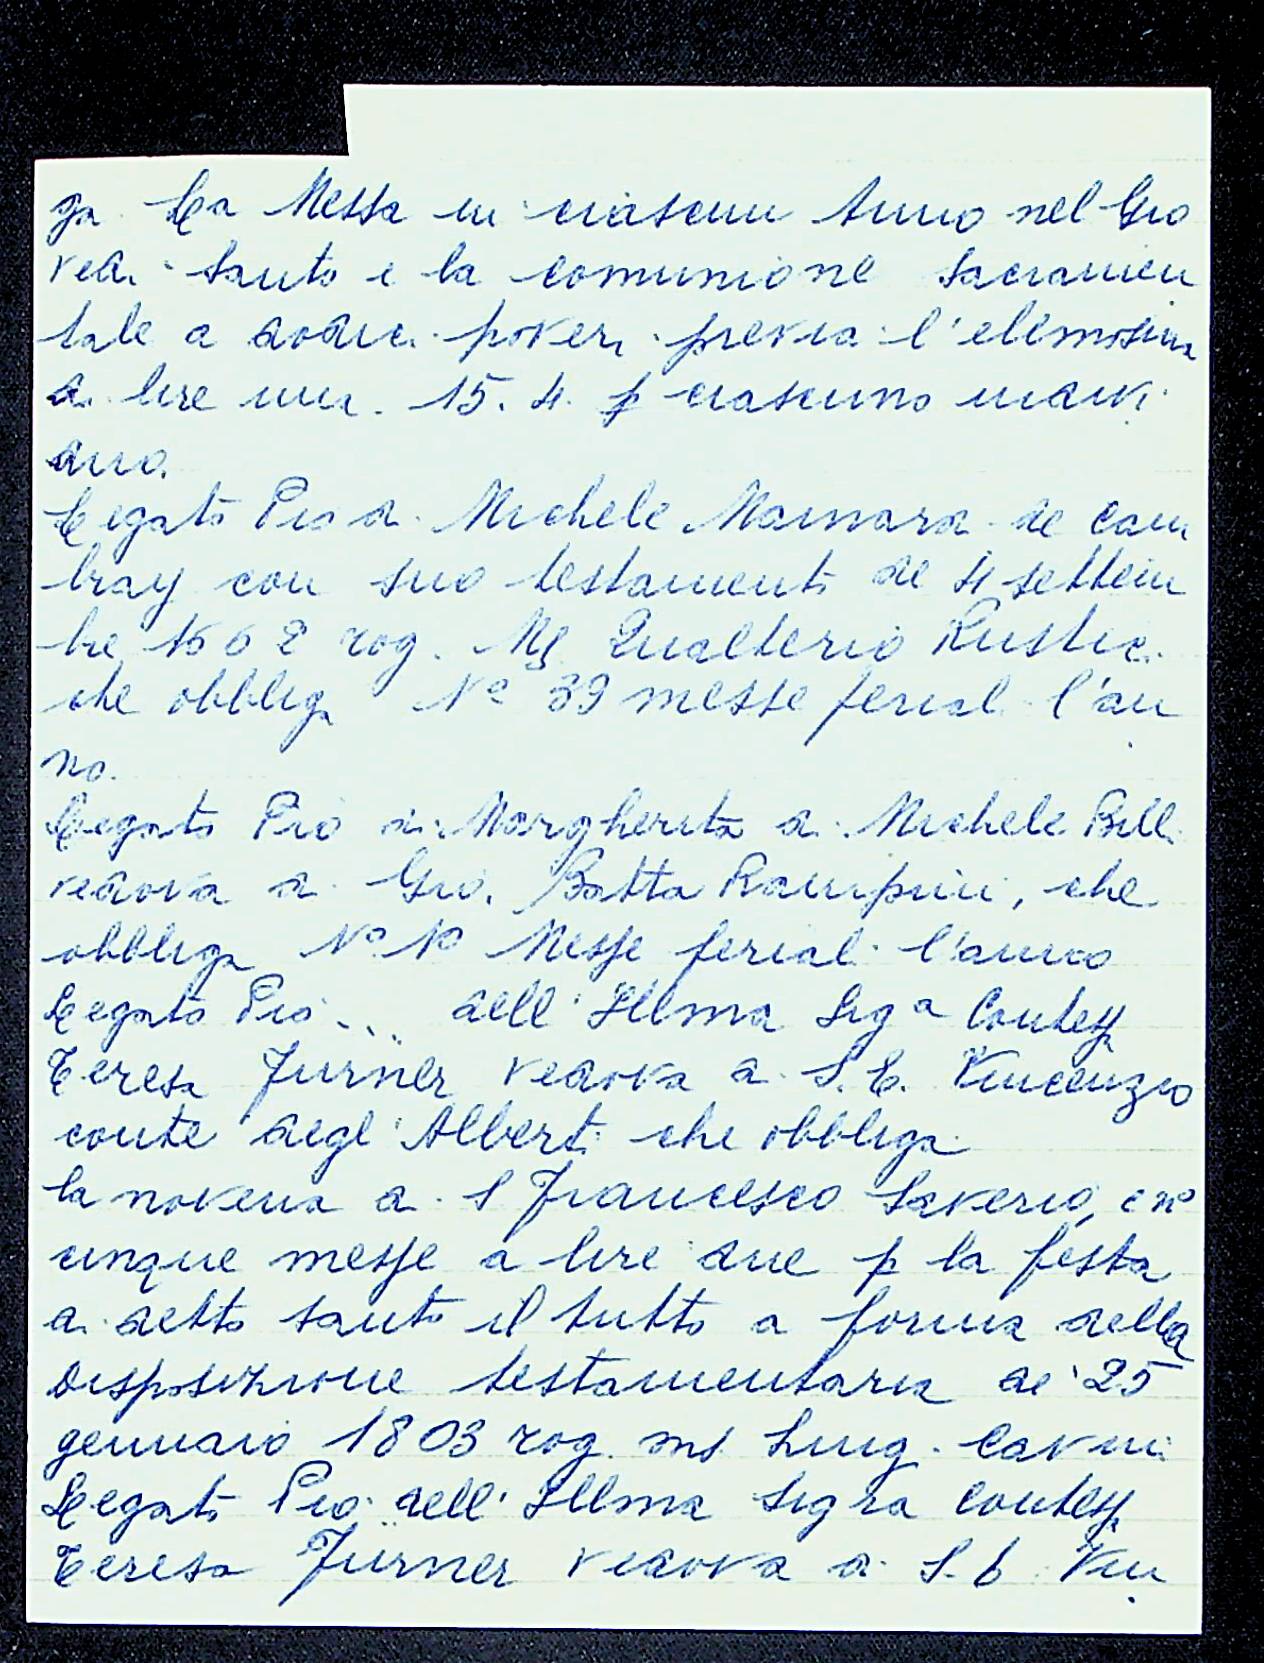 ga La Messa in ciascun Anno nel Gio
vedi Santo e la comunione Sacramen
tale a dodici poveri previa l'elemosina
di lire una. 15. 4. p ciascuno indivi
duo.
Legato Pio di Michele Mainara de Cam
bray con suo testamento de 4 settem
bre 1662 rog. Ms Qualterio Rustic.
che obbliga No 39 messe feriali l'an
no.
Legato Pio di Margherita di Michele Billi
vedova di Gio. Batta Rampini, che
obbliga No 10 Messe feriali l'anno
Legato Pio ... dell' Illma Sig a Contessa
Teresa Turner vedova di S. E. Vincenzio
conte degl' Alberti che obbliga
la novena di S Francesco Saverio, e no
cinque messe a lire due p la festa
di detto santo il tutto a forma della
Disposizione testamentaria de 25
gennaio 1803 rog. ms Luig. Cavini
Legato Pio dell' Illma Sig ra Contessa
Teresa Turner vedova di S. E Vin